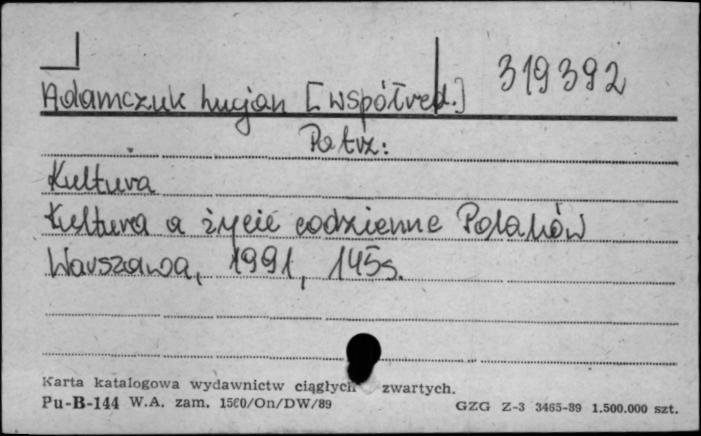 319392
Adamczuk Lucjan [współred.]
Patrz:
Kultura
Kultura a życie codzienne Polaków
Warszawa, 1991, 145s.
Karta katalogowa wydawnictw ciągłych zwartych.
Pu-B-144 W.A. zam. 1560/On/DW/89 GZG Z-3 3465-89 1.500.000 szt.